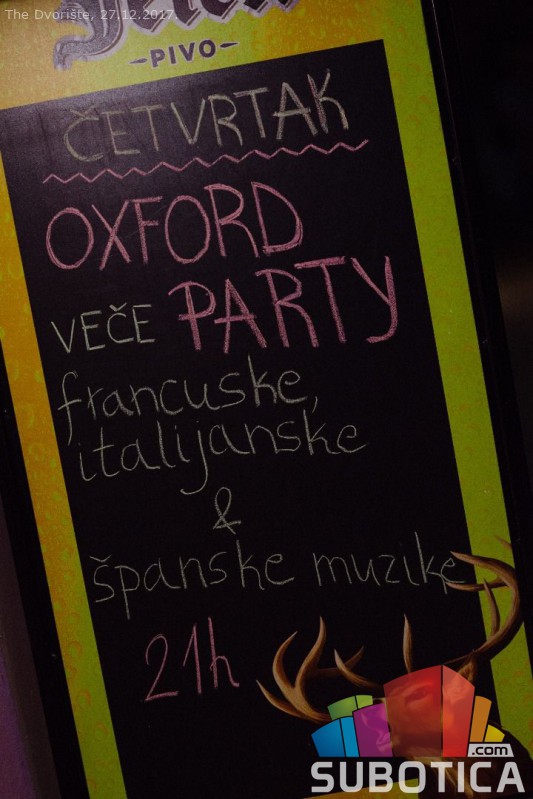 The Dvoriste, 27.12.2017.
PIVO
ČETVRTAK
OXFORD
VEČE PARTY
francuske,
italijanske
&
španske muzike
21h
.com
SUBOTICA